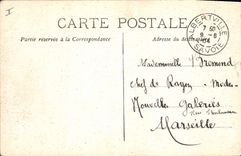 CARTE POSTALE
Partie réservée à la Correspondance
Adresse du destinataire
ALBERTVILLE
SAVOIE
Mademoiselle
Chef de Rayon Modes
Nouvelles Galeries
Marseille